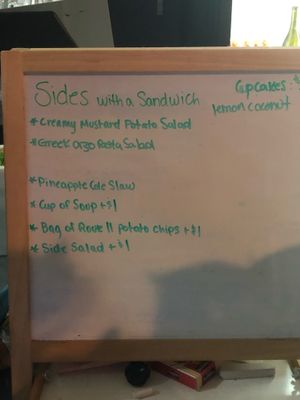 Sides with a Sandwich
*Creamy Mustard Potato Salad
*Greek Orzo Pasta Salad
*Pineapple Cole Slaw
*Cup of Soup +$1
*Bag of Route 11 potato chips +$1
*Side Salad +$1
Cupcakes:
lemon coconut